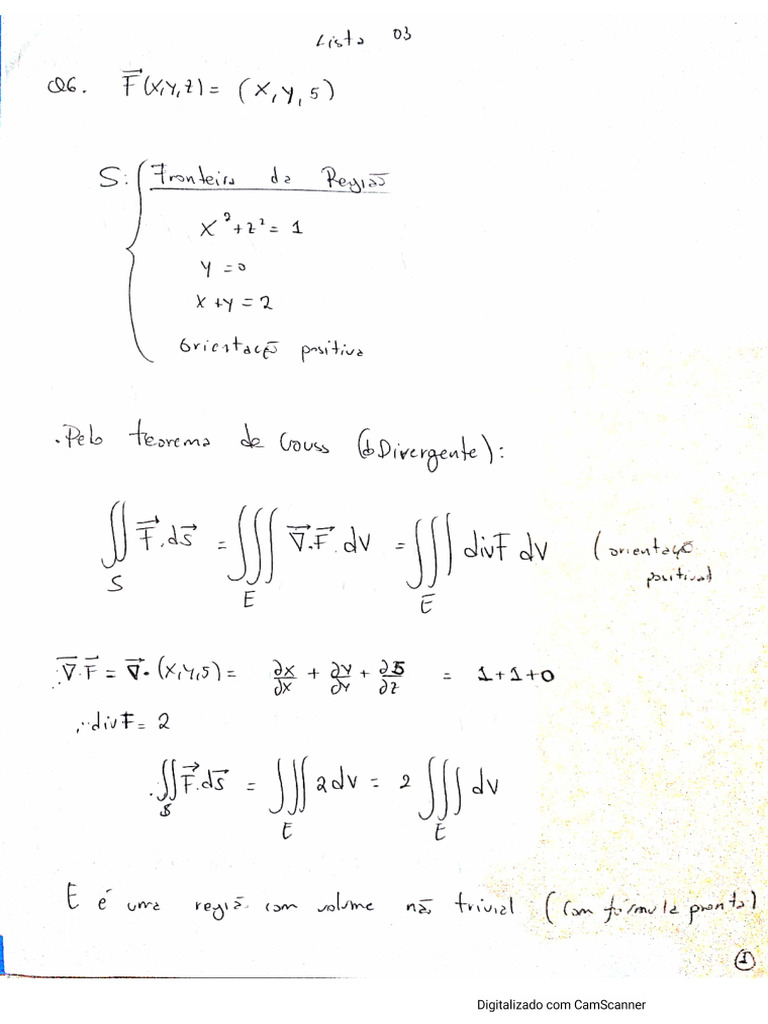 Lista 03
Q6. F(x,y,z) = (x,y,5)
S: Fronteira da Região
x²+z² = 1
y = 0
x + y = 2
Orientação positiva
.Pelo teorema de Gauss (do Divergente):
∬_S F.ds = ∭_E ∇.F.dV = ∭_E divF dV (orientação positiva)
∇.F = ∇.(x,y,5) = ∂x/∂x + ∂y/∂y + ∂5/∂z = 1+1+0
∴divF = 2
.∬_S F.ds = ∭_E 2dv = 2 ∭_E dv
E é uma região com volume não trivial (com fórmula pronta)
1
Digitalizado com CamScanner